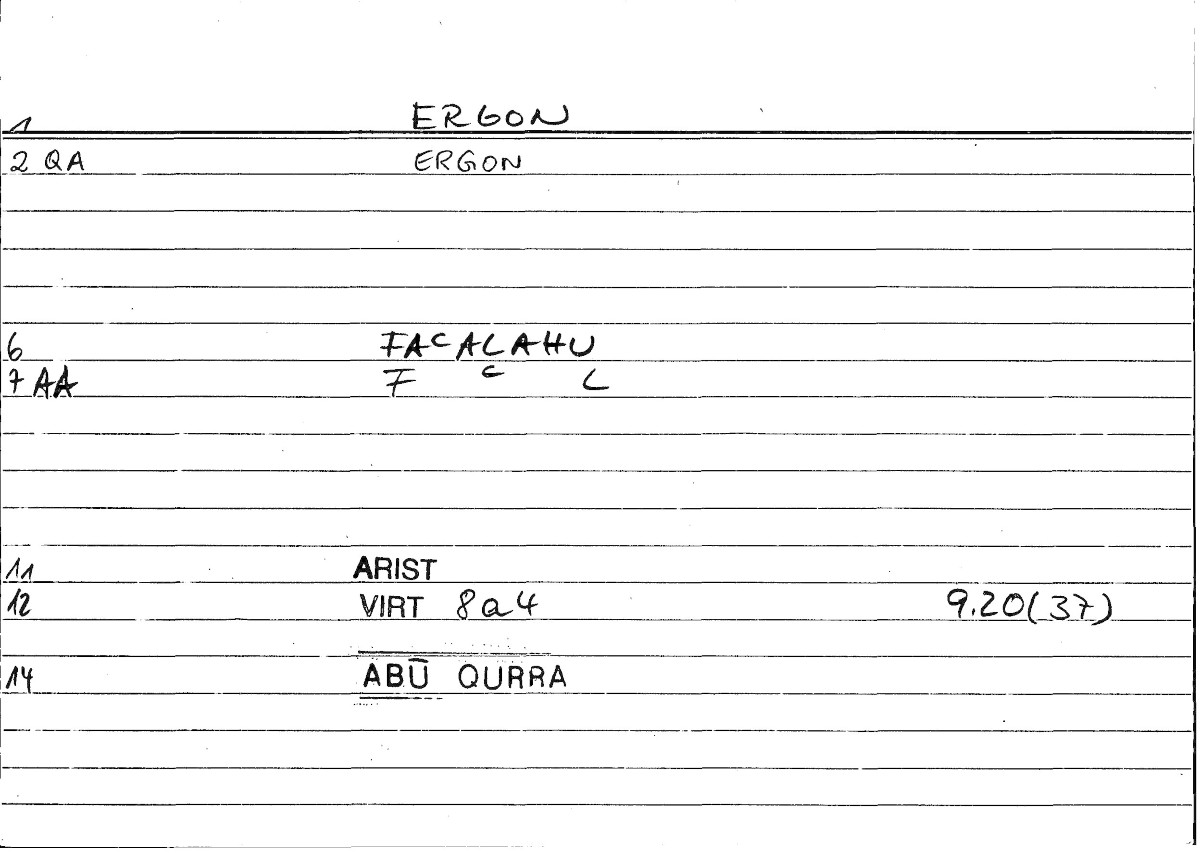 1 ERGON
2 QA ERGON
6 FAᶜALAHU
7 AA F ᶜ L
11 ARIST
12 VIRT 8a4 9.20(37)
14 ABŪ QURRA